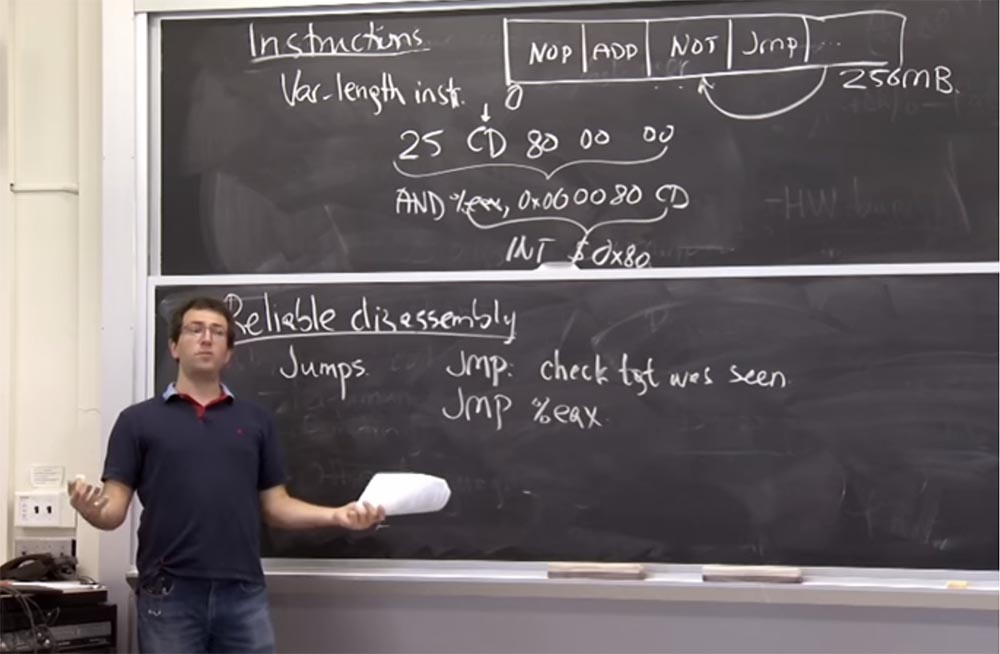 Instructions.
NOP ADD NOT Jmp ...
0 256MB.
Var-length inst.
25 CD 80 00 00
AND %eax, 0x000080 CD
INT $0x80
Reliable disassembly
Jumps. Jmp: check tgt was seen.
Jmp %eax.